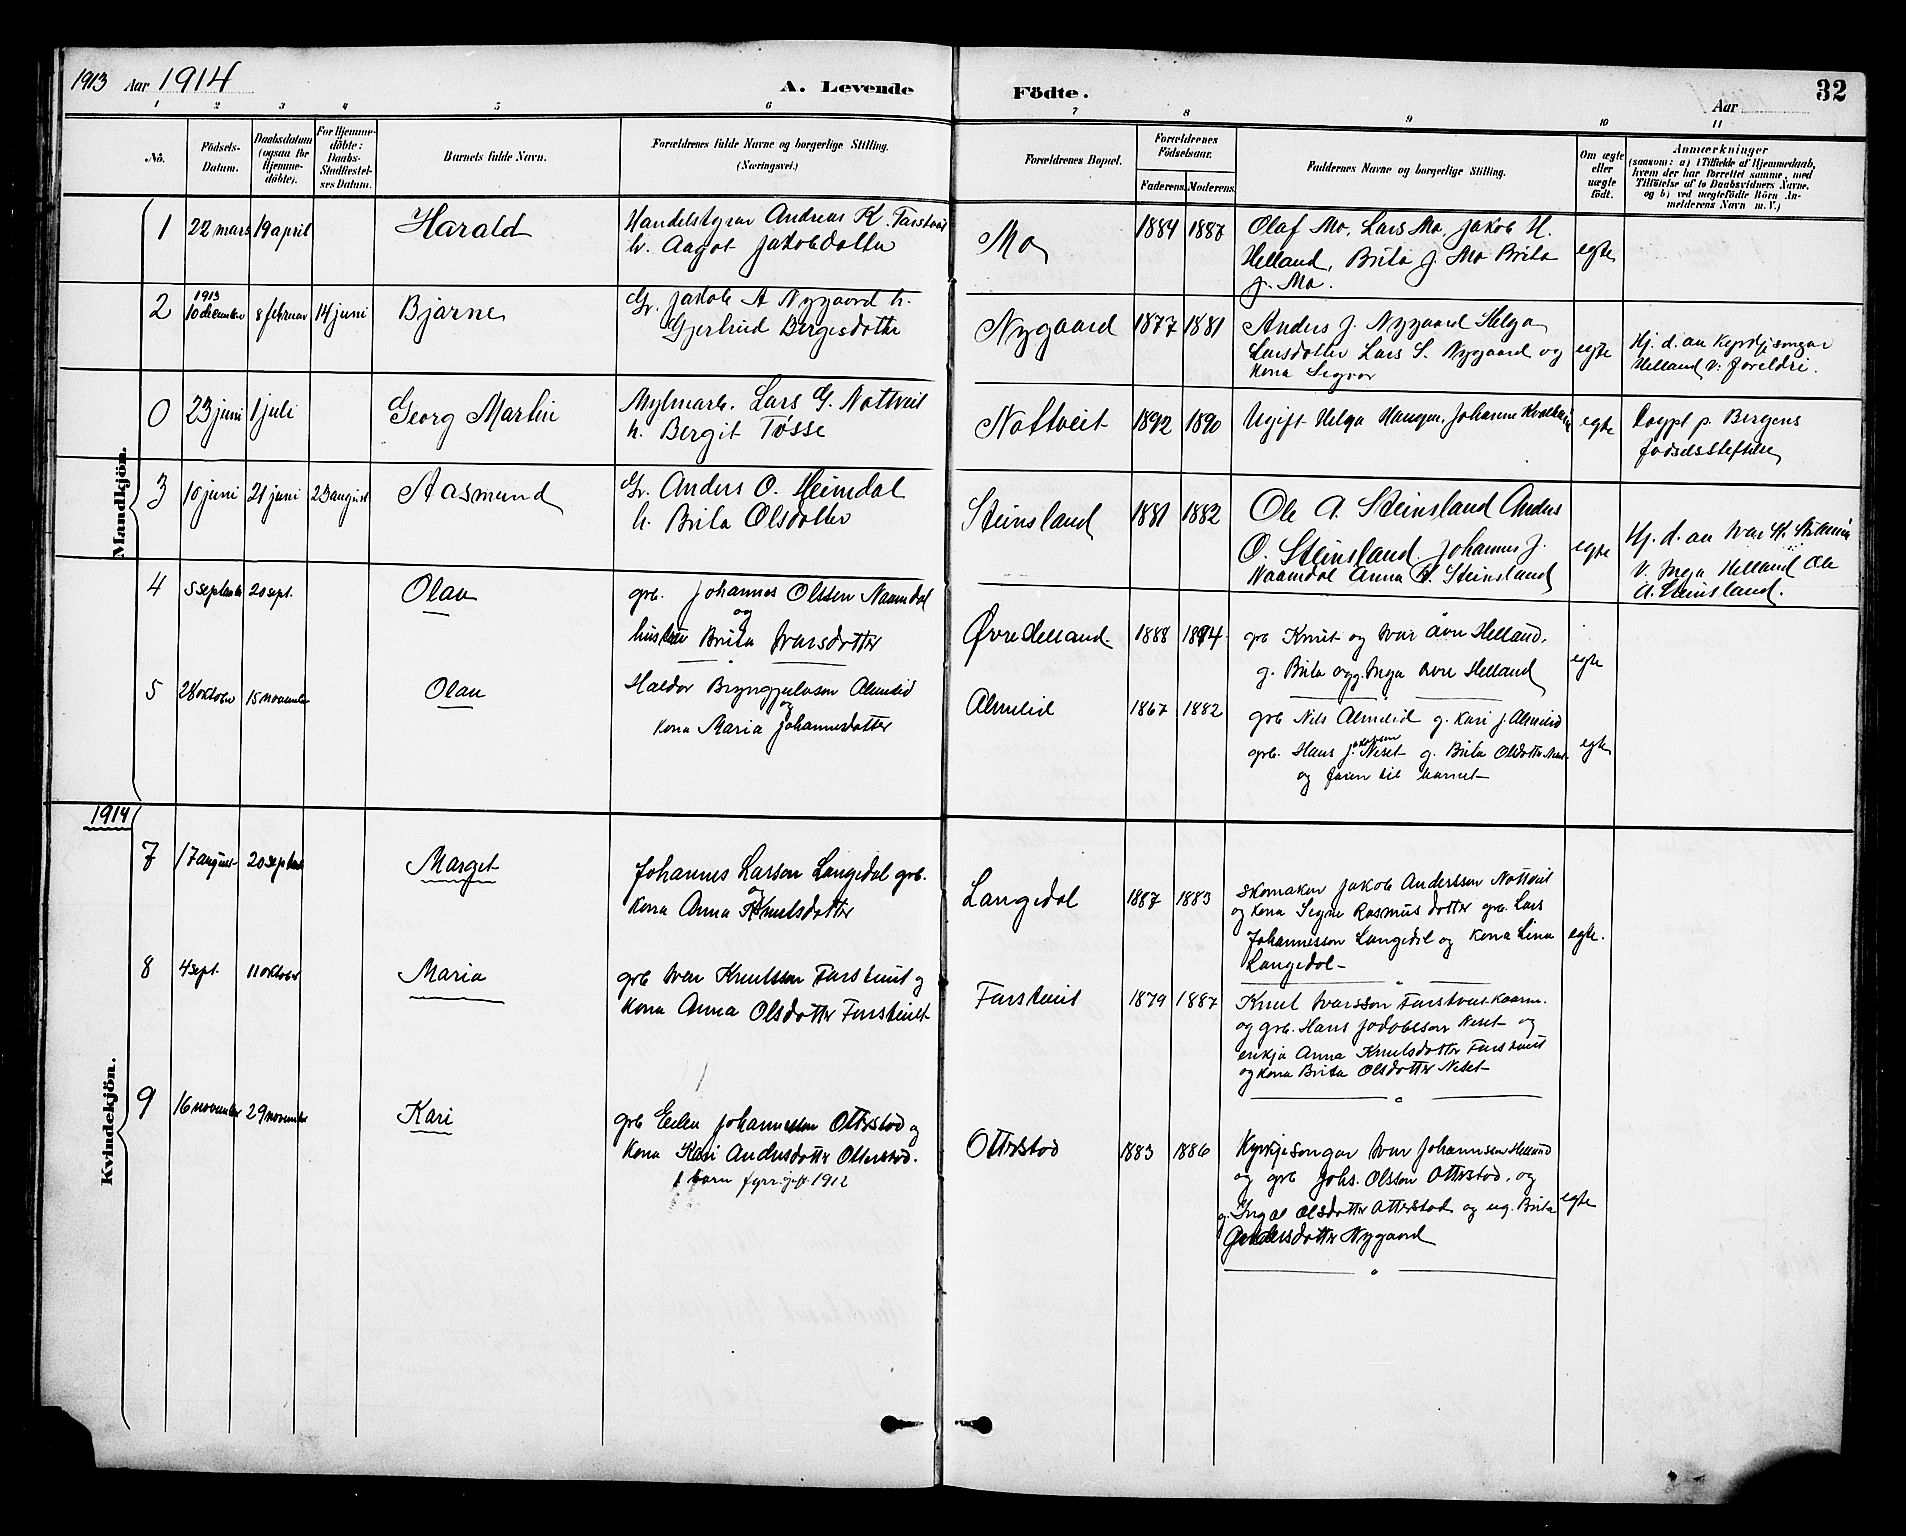 1913 Aar 1914 A. Levende Födte. Aar 32
1 2 3 4 5 6 7 8 9 10 11
No.
Födsels-
Datum.
Daabsdatum
(ogsaa for
Hjemme-
döbte).
For Hjemme-
döbte:
Daabs-
Stadfæstel-
ses Datum.
Barnets fulde Navn.
Forældrenes fulde Navne og borgerlige Stilling.
(Næringsvei.)
Forældrenes Bopæl.
Forældrenes
Födselsaar.
Faderens. Moderens.
Faddernes Navne og borgerlige Stilling.
Om ægte
eller
uægte
födt.
Anmærkninger
(saasom: a) i Tilfælde af Hjemmedaab,
hvem der har forrettet samme, med
Tilföielse af to Daabsvidners Navne,
og b) ved uægtefödte Börn An-
melderens Navn m. V.)
Mandkjön.
1 22 mars 19 april Harald
Handelstyrar Andreas K. Farstveit
h. Aagot Jakobsdotter
Mo 1884 1887
Olaf Mo, Lars Mo, Jakob H.
Helland, Brita J. Mo Brita
J. Mo.
egte
2 1913
10 december 8 februar 14 juni Bjarne
Gr. Jakob A Nygaard h.
Gjertrud Bergesdotter
Nygaard 1877 1881
Anders J. Nygaard Helga
Larsdotter Lars S. Nygaard og
kona Sygvor
egte
Hj. d. au Kyrkjesongar
Helland v: foreldri.
0 23 juni 1 juli Georg Martin
Lars G. Nottveit
h. Bergit Tøsse
Nottveit 1892 1890
Ugift Helga Haugen, Johanne
egte
Døypt p. Bergens
fødselsstiftelse
3 10 juni 21 juni 23 august Aasmund
Gr. Anders O. Heimdal
h. Brita Olsdotter
Steinsland 1881 1882
Ole A. Steinsland Anders
O. Steinsland. Johannes J.
Naamdal Anna Steinsland
egte
Hj. d. au Ivar
v. Inga Helland Ole
A. Steinsland.
4 5 september 20 sept. Olav
grb. Johannes Olsson Naamdal
og
Brita Ivarsdotter
Øvre Helland 1888 1894
grb Knut og Ivar øvre Helland.
g. Brita og g. Inga øvre Helland
egte
5 28 oktober 15 november Olav
Haldor Bryngjulvson Almelid
og
kona Maria Johannesdotter
Almelid 1867 1882
grb Nils Almelid g. Kari J. Almelid
grb. Hans Jakobson Neset g. Brita Olsdotter Neset
og faren til barnet
egte
1914
Kvindekjön.
7 17 august 20 september Marget
Johannes Larson Langedal grb.
og
kona Anna Knutsdotter
Langedal 1887 1883
skomaker Jakob Andersson Nottveit
og kona Signe Rasmusdotter grb. Lars
Johannesson Langedal og kona Lina
Langedal
egte.
8 4 sept. 11 oktober Maria
grb Ivar Knutsson Farstveit og
kona Anna Olsdotter Farstveit
Farstveit 1879 1887
Knut Ivarsson Farstveit kaarm.
og grb. Hans Jakobson Neset og
enkja Anna Knutsdotter Farstveit
og kona Brita Olsdotter Neset
9 16 november 29 november Kari
grb Eilev Johannesson Otterstad og
kona Kari Andersdotter Otterstad.
1 barn fyrr. gift 1912
Otterstad 1883 1886
Kyrkjesongar Ivar Johannsson Helland
og grb Johs. Olsson Otterstad, og
g. Inga Olsdotter Otterstad og ug. Brita
Andersdotter Nygaard
egte